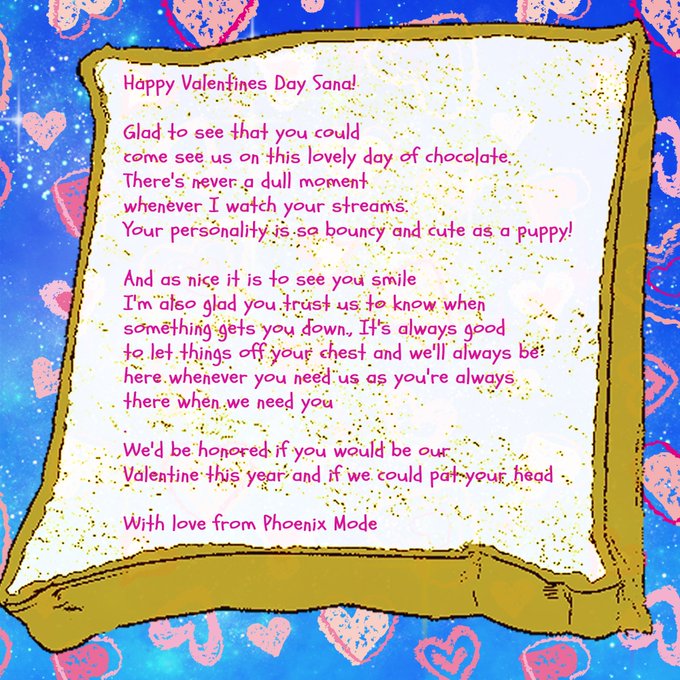 Happy Valentines Day Sana!
Glad to see that you could
come see us on this lovely day of chocolate.
There's never a dull moment
whenever I watch your streams.
Your personality is so bouncy and cute as a puppy!
And as nice it is to see you smile
I'm also glad you trust us to know when
something gets you down., It's always good
to let things off your chest and we'll always be
here whenever you need us as you're always
there when we need you
We'd be honored if you would be our
Valentine this year and if we could pat your head
With love from Phoenix Mode